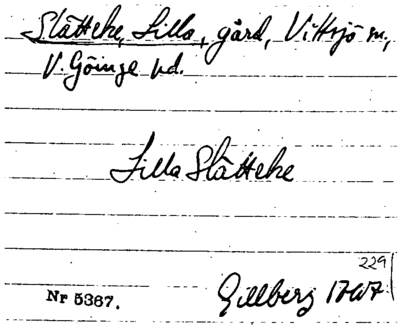 Slätteke, Lilla, gård, Vittsjö sn,
V. Göinge hd.
Lilla Slätteke
229
Nr 5367. Gillberg 1767